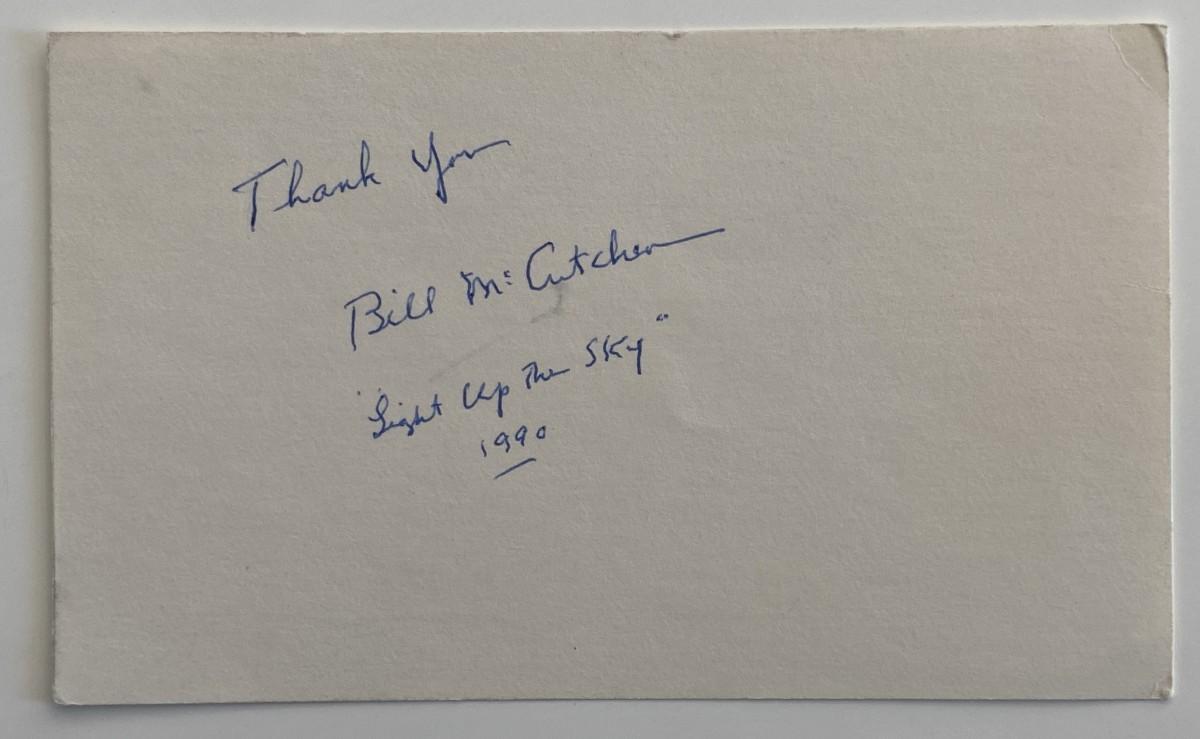 Thank You
Bill Mc Cutcheon
"Light Up The Sky"
1990